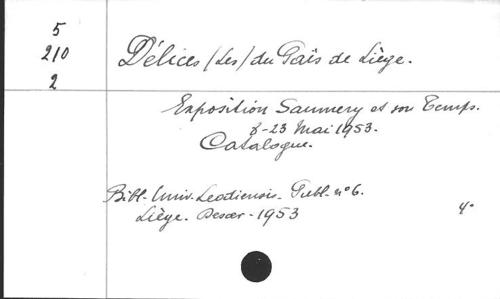 5
210
2
Délices (Les) du Païs de Liège.
Exposition Saumery et son Temps.
8-23 Mai 1953.
Catalogue.
Bibl. Univ. Leodiensis. Publ. n° 6.
Liège. Desoer - 1953
4°